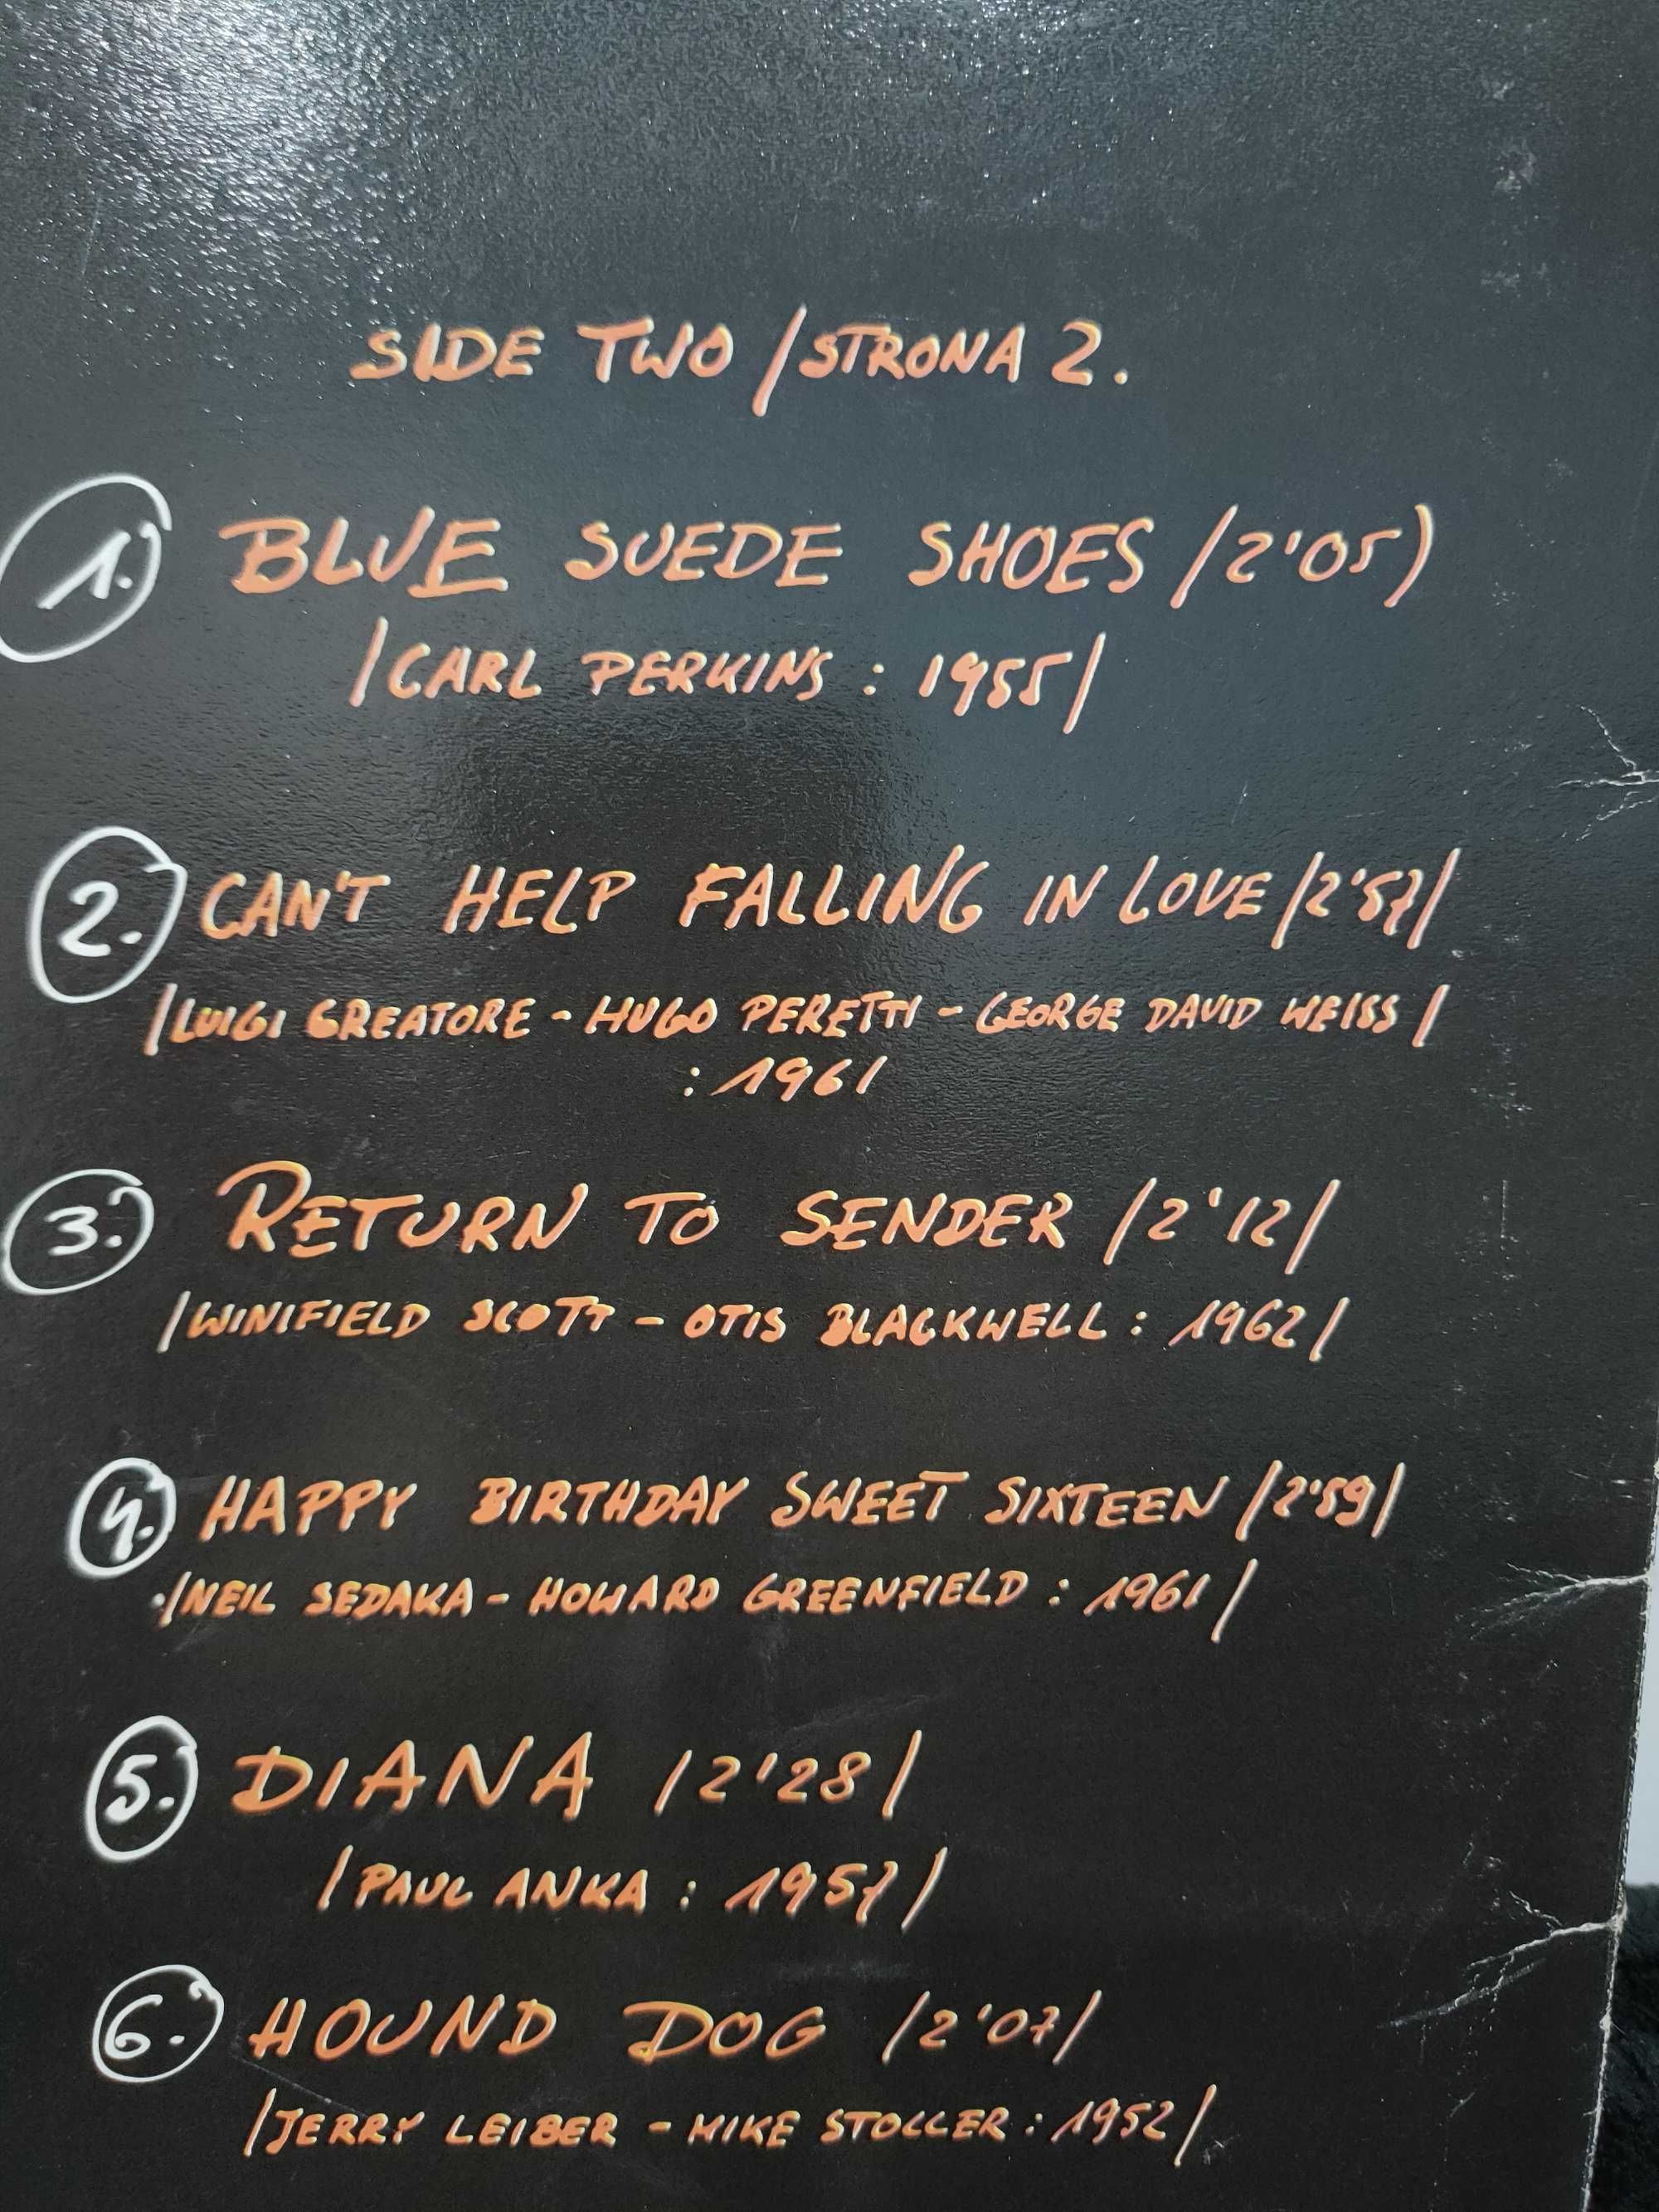 SIDE TWO /STRONA 2.
1. BLUE SUEDE SHOES /2'05)
/CARL PERKINS : 1955/
2. CAN'T HELP FALLING IN LOVE /2'57/
/LUIGI CREATORE - HUGO PERETTI - GEORGE DAVID WEISS /
: 1961
3. RETURN TO SENDER /2'12/
/WINIFIELD SCOTT - OTIS BLACKWELL : 1962/
4. HAPPY BIRTHDAY SWEET SIXTEEN /2'59/
/NEIL SEDAKA - HOWARD GREENFIELD : 1961/
5. DIANA /2'28/
/PAUL ANKA : 1957/
6. HOUND DOG /2'07/
/JERRY LEIBER - MIKE STOLLER : 1952/